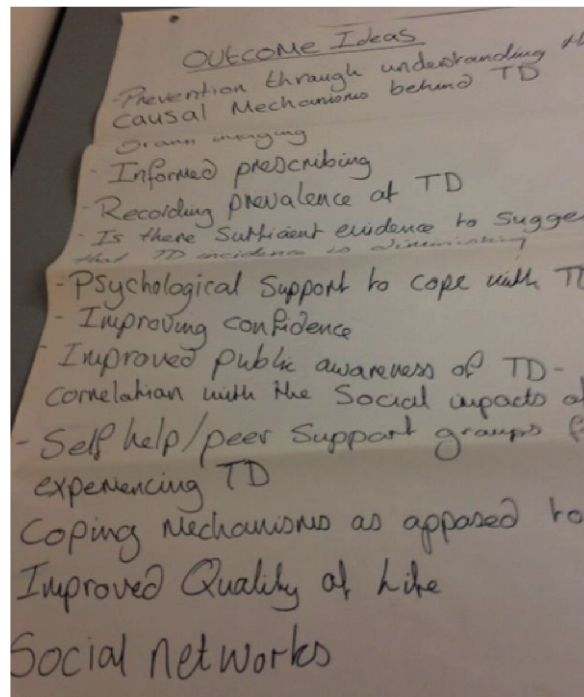 OUTCOME Ideas
- Prevention through understanding th
causal Mechanisms behind TD
imaging
- Informed prescribing
- Recording prevalence of TD
- Is there Sufficient evidence to Sugge
that TD incidence is diminishing
- Psychological Support to cope with TD
- Improving confidence
- Improved public awareness of TD -
correlation with the Social impacts of
- Self help/peer Support groups f
experiencing TD
Coping Mechanisms as apposed to
Improved Quality of Life
Social networks